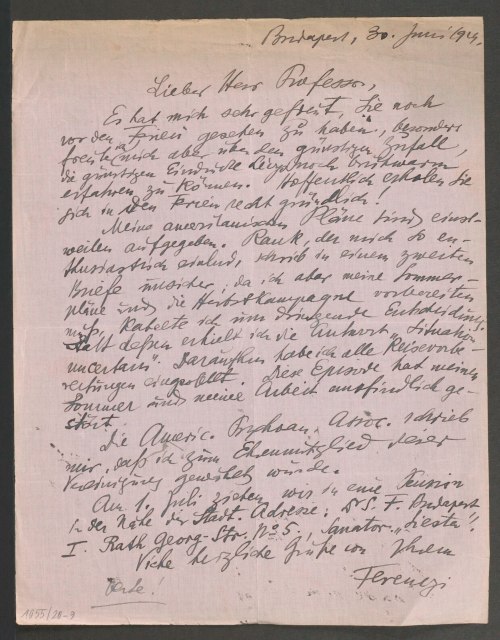 Budapest, 30. Juni 1924.
Lieber Herr Professor,
Es hat mich sehr gefreut, Sie noch
vor den Ferien gesehen zu haben, besonders
freute mich aber über den günstigen Zufall,
die günstigen Eindrücke noch brühwarm
erfahren zu können. Hoffentlich erholen Sie
sich in den Ferien recht gründlich!
Meine amerikanischen Pläne sind einst-
weilen aufgegeben. Rank, der mich so en-
thusiastisch einlud, schrieb in einem zweiten
Briefe unsicher; da ich aber meine Sommer-
pläne und die Herbstkampagne vorbereiten
muß, kabelte ich um dringende Entscheidung.
Statt dessen erhielt ich die Antwort „Situation
uncertain". Daraufhin habe ich alle Reisevorbe-
reitungen eingestellt. Diese Episode hat meinen
Sommer und meine Arbeit empfindlich ge-
stört.
Die Americ. Psychoan. Assoc. schrieb
mir, daß ich zum Ehrenmitglied dieser
Vereinigung gewählt wurde.
Am 1. Juli ziehen wir in eine Pension
in der Nähe der Stadt. Adresse: Dr S. F. Budapest
I. Rath Georg-Str. No 5. Sanator. „Siesta".
Viele herzliche Grüße von Ihrem
Ferenczi
1055/28-3